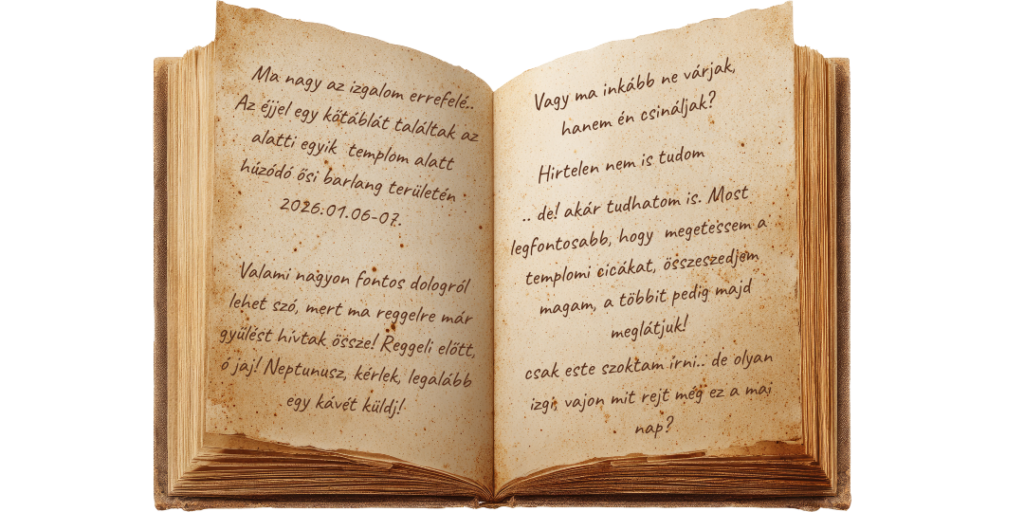 Ma nagy az izgalom errefelé..
Az éjjel egy kőtáblát találtak az
alatti egyik templom alatt
húzódó ősi barlang területén
2026.01.06-07.
Valami nagyon fontos dologról
lehet szó, mert ma reggelre már
gyűlést hívtak össze! Reggeli előtt,
ó jaj! Neptunusz, kérlek, legalább
egy kávét küldj!
Vagy ma inkább ne várjak,
hanem én csináljak?
Hirtelen nem is tudom
.. de! akár tudhatom is. Most
legfontosabb, hogy megetessem a
templomi cicákat, összeszedjem
magam, a többit pedig majd
meglátjuk!
csak este szoktam írni.. de olyan
izgi, vajon mit rejt még ez a mai
nap?